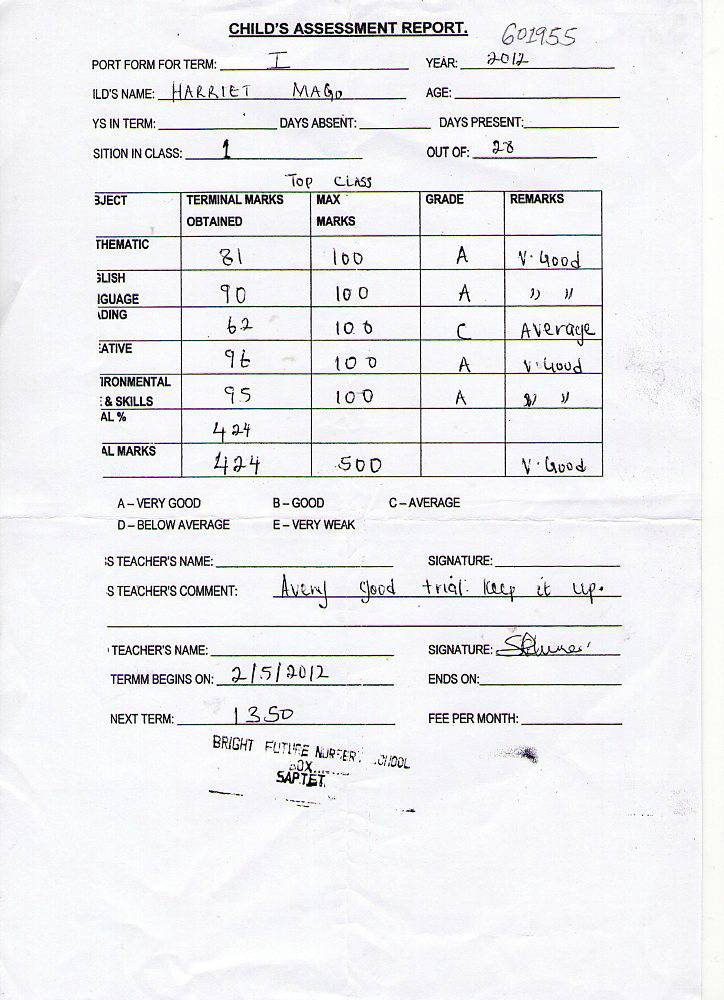 CHILD'S ASSESSMENT REPORT.
601955
PORT FORM FOR TERM: I YEAR: 2012
ILD'S NAME: HARRIET MAGO AGE:
YS IN TERM: DAYS ABSENT: DAYS PRESENT:
SITION IN CLASS: 1 OUT OF: 28
TOP CLASS
BJECT TERMINAL MARKS OBTAINED MAX MARKS GRADE REMARKS
THEMATIC 81 100 A V. Good
GLISH
NGUAGE 90 100 A " "
ADING 62 100 C Average
EATIVE 96 100 A V. Good
IRONMENTAL
& SKILLS 95 100 A " "
AL % 424
AL MARKS 424 500 V. Good
A – VERY GOOD B – GOOD C – AVERAGE
D – BELOW AVERAGE E – VERY WEAK
S TEACHER'S NAME: SIGNATURE:
S TEACHER'S COMMENT: Avery good trial. Keep it up.
TEACHER'S NAME: SIGNATURE:
TERMM BEGINS ON: 2/5/2012 ENDS ON:
NEXT TERM: 1350 FEE PER MONTH:
BRIGHT FUTURE NURSERY SCHOOL
BOX
SAPTET